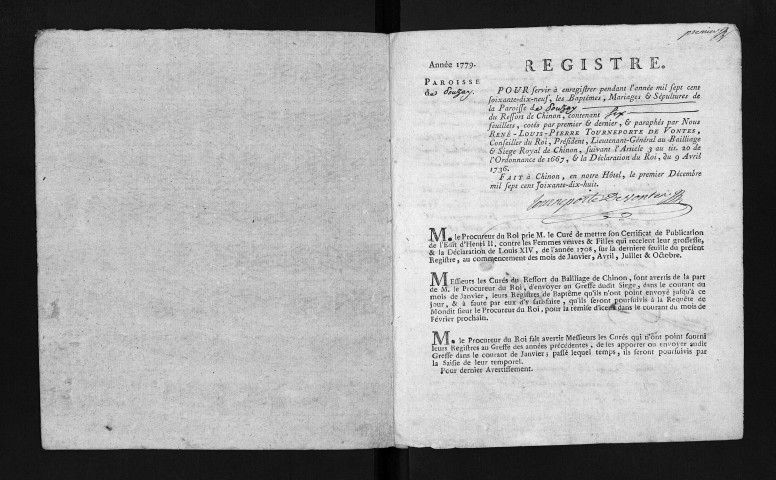 premier
Année 1779.
REGISTRE.
PAROISSE
de Pouzay.
POUR servir à enregistrer pendant l'année mil sept cent
soixante-dix-neuf, les Baptêmes, Mariages & Sépultures de
la Paroisse de Pouzay
du Ressort de Chinon, contenant six
feuillets, cotés par premier & dernier, & paraphés par Nous
RENÉ-LOUIS-PIERRE TOURNEPORTE DE VONTES,
Conseiller du Roi, Président, Lieutenant-Général au Bailliage
& Siege Royal de Chinon, suivant l'Article 3 au tit. 20 de
l'Ordonnance de 1667, & la Déclaration du Roi, du 9 Avril
1736.
FAIT à Chinon, en notre Hôtel, le premier Décembre
mil sept cent soixante-dix-huit.
Tourneporte De vontes
M. le Procureur du Roi prie M. le Curé de mettre son Certificat de Publication
de l'Edit d'Henri II, contre les Femmes veuves & Filles qui recelent leur grossesse,
& la Déclaration de Louis XIV, de l'année 1708, sur la derniere feuille du présent
Registre, au commencement des mois de Janvier, Avril, Juillet & Octobre.
MEssieurs les Curés du Ressort du Bailliage de Chinon, sont avertis de la part
de M. le Procureur du Roi, d'envoyer au Greffe dudit Siege, dans le courant du
mois de Janvier, leurs Registres de Baptême qu'ils n'ont point envoyé jusqu'à ce
jour, & à faute par eux d'y satisfaire, qu'ils seront poursuivis à la Requête de
Mondit sieur le Procureur du Roi, pour la remise d'iceux dans le courant du mois de
Février prochain.
M. le Procureur du Roi fait avertir Messieurs les Curés qui n'ont point fourni
leurs Registres au Greffe des années précédentes, de les apporter ou envoyer audit
Greffe dans le courant de Janvier; passé lequel temps, ils seront poursuivis par
la Saisie de leur temporel.
Pour dernier Avertissement.